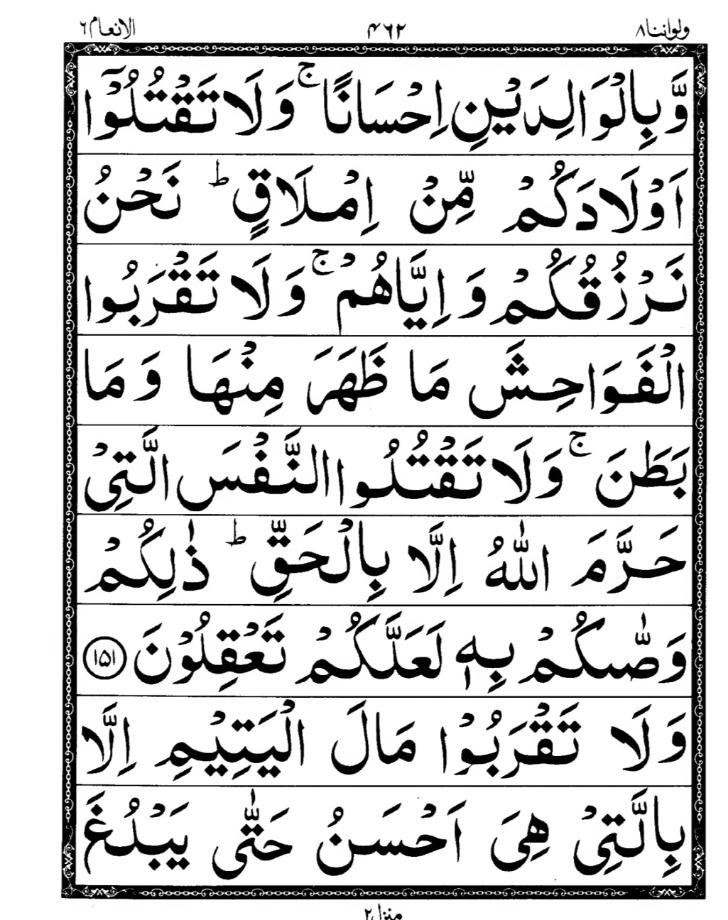 ولواننا۸ ۴۶۲ الانعام۶
وَّبِالۡوَالِدَيۡنِ اِحۡسَانًا ۚ وَلَا تَقۡتُلُوۡۤا
اَوۡلَادَكُمۡ مِّنۡ اِمۡلَاقٍ ؕ نَحۡنُ
نَرۡزُقُكُمۡ وَاِيَّاهُمۡ ۚ وَلَا تَقۡرَبُوا
الۡفَوَاحِشَ مَا ظَهَرَ مِنۡهَا وَمَا
بَطَنَ ۚ وَلَا تَقۡتُلُوا النَّفۡسَ الَّتِىۡ
حَرَّمَ اللّٰهُ اِلَّا بِالۡحَقِّ ؕ ذٰ لِكُمۡ
وَصّٰٮكُمۡ بِهٖ لَعَلَّكُمۡ تَعۡقِلُوۡنَ ۱۵۱
وَلَا تَقۡرَبُوۡا مَالَ الۡيَتِيۡمِ اِلَّا
بِالَّتِىۡ هِىَ اَحۡسَنُ حَتّٰى يَبۡلُغَ
منزل۲